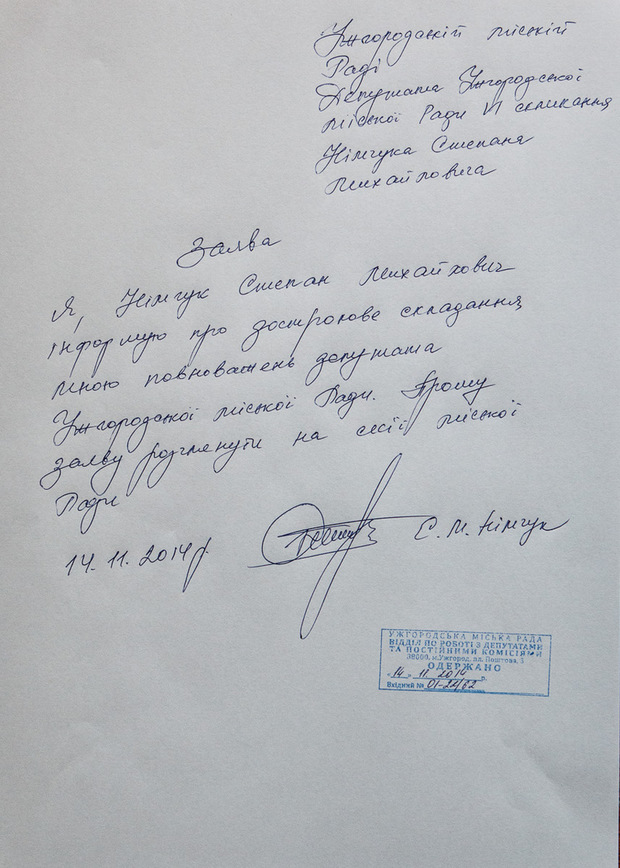 Ужгородській міській
Раді
Депутата Ужгородської
міської Ради VI скликання
Німчука Степана
Михайловича
Заява
Я, Німчук Степан Михайлович
інформую про дострокове складання
мною повноважень депутата
Ужгородської міської Ради. Прошу
заяву розглянути на сесії міської
Ради
14.11.2014р.
С.М. Німчук
УЖГОРОДСЬКА МІСЬКА РАДА
ВІДДІЛ ПО РОБОТІ З ДЕПУТАТАМИ
ТА ПОСТІЙНИМИ КОМІСІЯМИ
38000, м.Ужгород, пл. Поштова, 3
ОДЕРЖАНО
«14» 11 2014 р.
Вхідний № 01-24/62